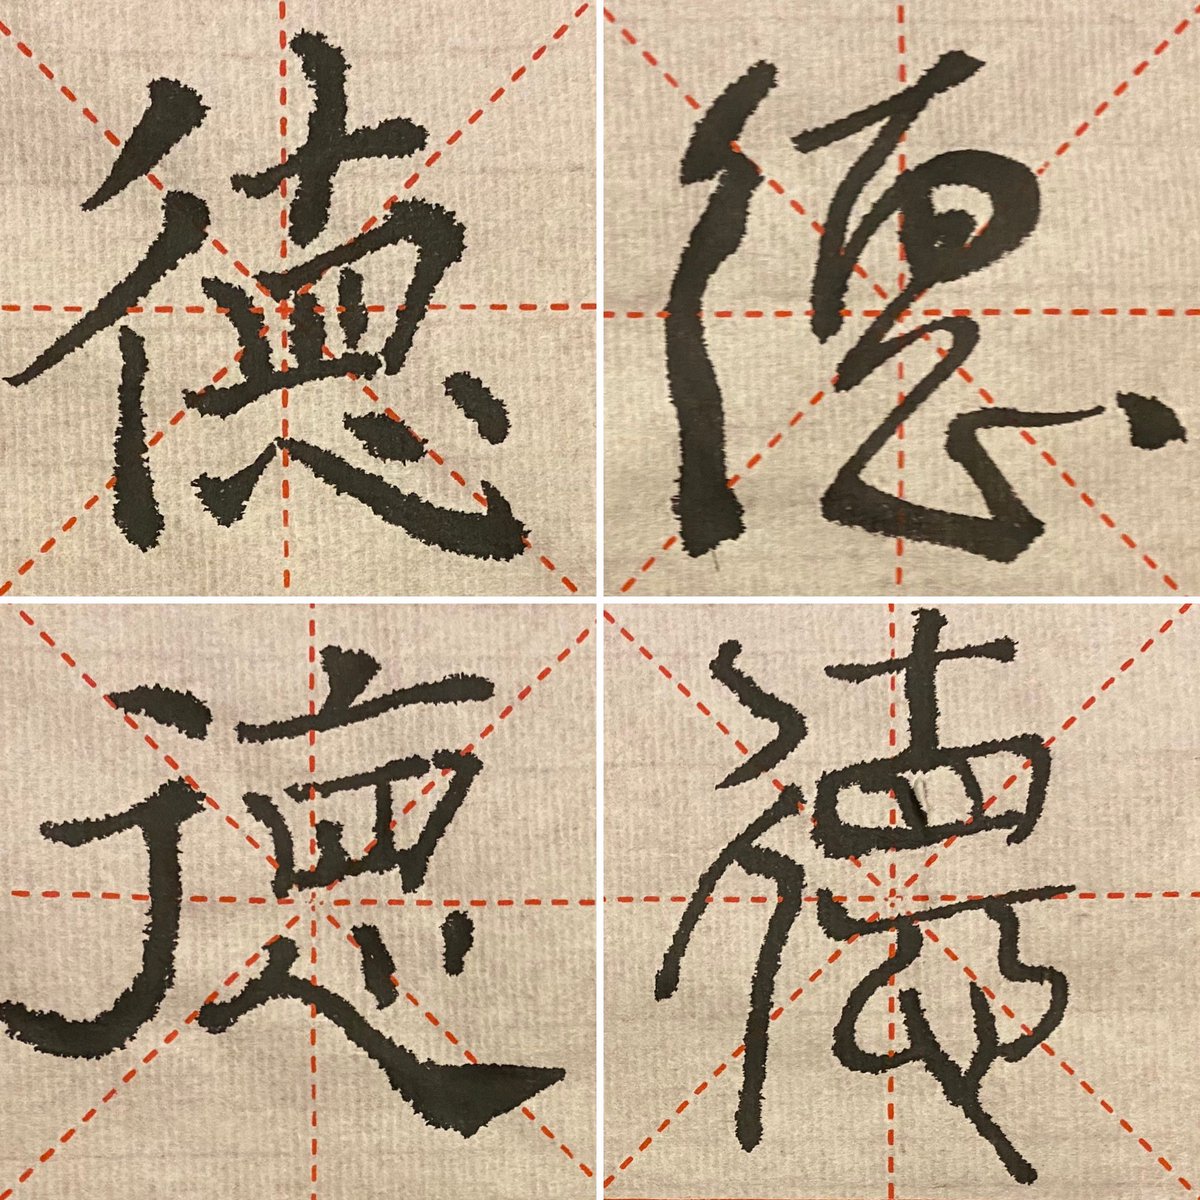 德德
德德